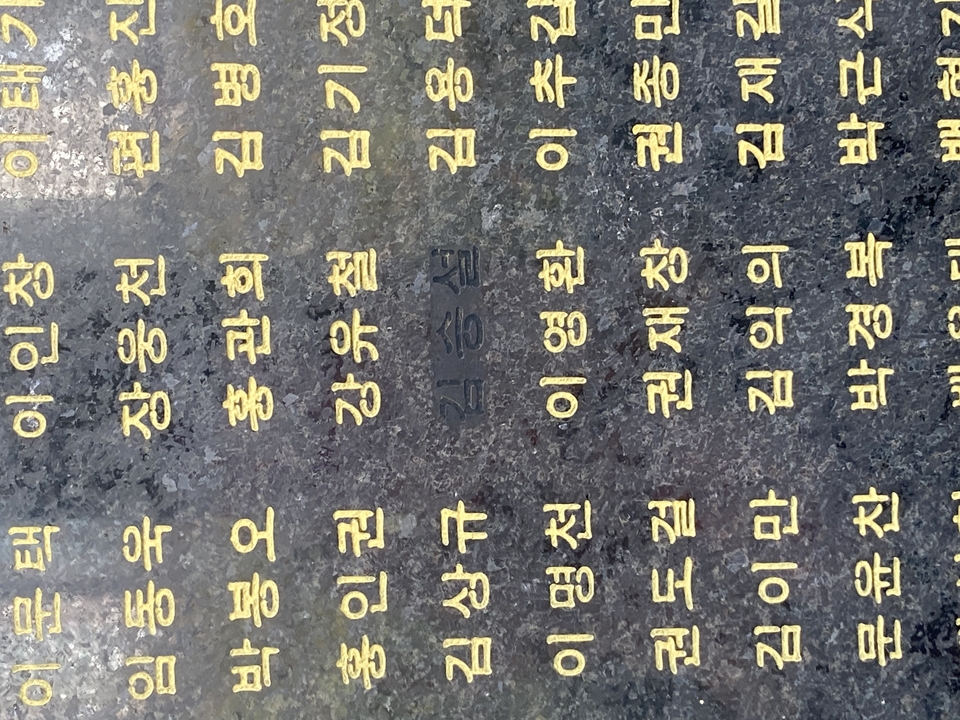 이문택 이인창 이태
임동욱 장웅천 편홍진
박봉오 홍관희 김병호
홍인권 강유철 김기정
김상규 김승설 김용덕
이명천 이영환 이추갑
권도길 권재창 권종만
김이만 김억의 김재길
문윤찬 박경복 박근